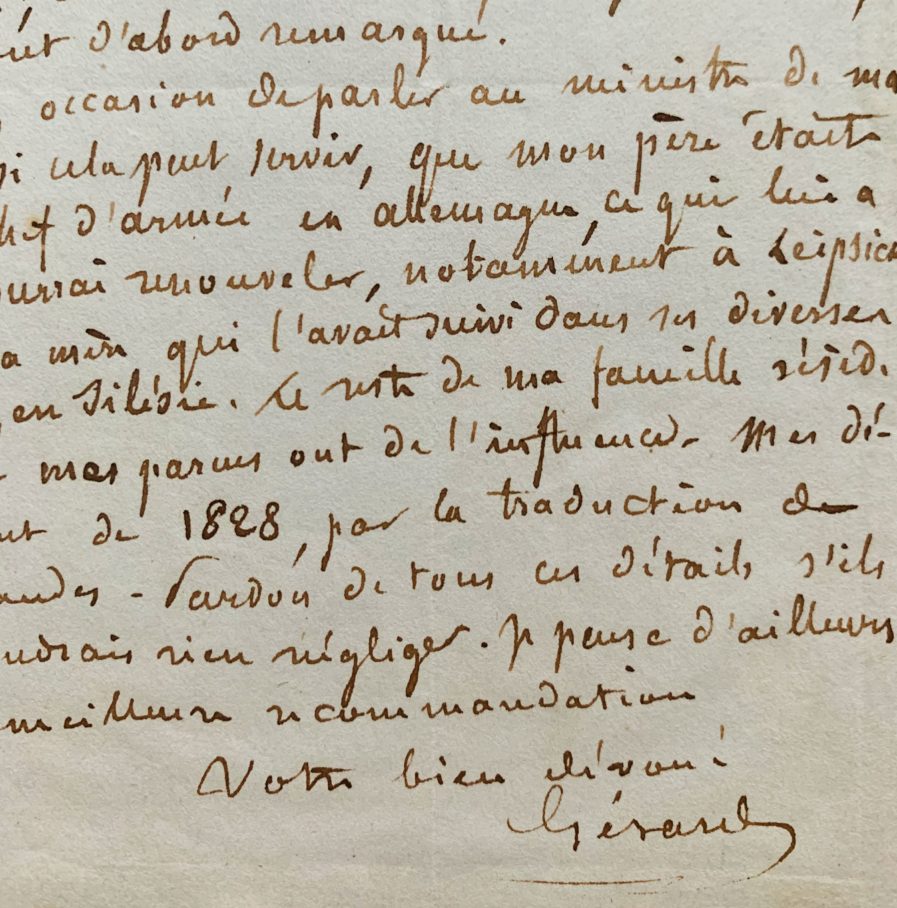 d'abord remarqué.
occasion de parler au ministre de ma
si cela peut servir, que mon père était
d'armée en allemagne, ce qui lui a
renouveler, notamment à Leipsick
mère qui l'avait suivi dans ses diverses
en Silésie. Le reste de ma famille réside
mes parens ont de l'influence. Mes dé-
de 1828, par la traduction de
Pardon de tous ces détails s'ils
rien négliger. Je pense d'ailleurs
meilleure recommandation
Votre bien dévoué
Gérard